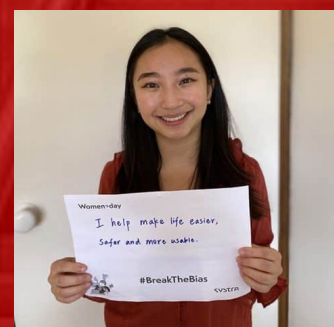 Women's day
I help make life easier,
Safer and more usable.
#BreakTheBias
SYSTRA